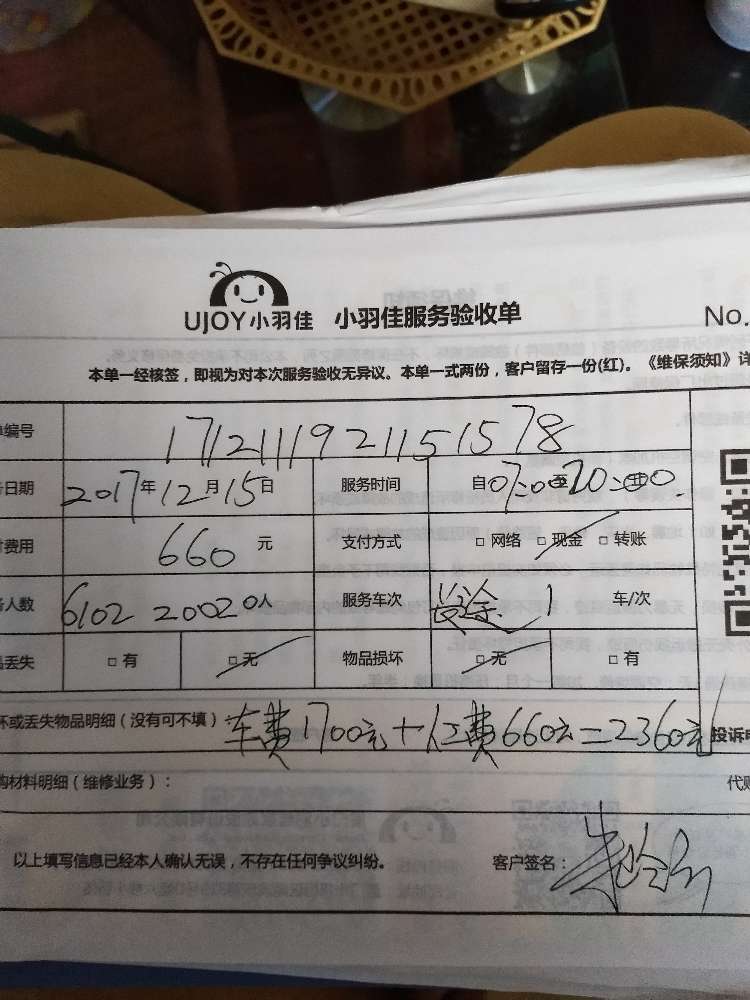 UJOY小羽佳 小羽佳服务验收单 No.
本单一经核签，即视为对本次服务验收无异议。本单一式两份，客户留存一份(红)。《维保须知》详
单编号 1712111921151578
务日期 2017年12月15日 服务时间 自07:00至20:00
费用 660元 支付方式 □ 网络 □ 现金 □ 转账
务人数 6102 20020人 服务车次 1 车/次
品丢失 □ 有 □ 无 物品损坏 □ 无 □ 有
坏或丢失物品明细（没有可不填） 车费1700元+人工费660元=2360元 投诉电
购材料明细（维修业务）： 代购
以上填写信息已经本人确认无误，不存在任何争议纠纷。 客户签名：